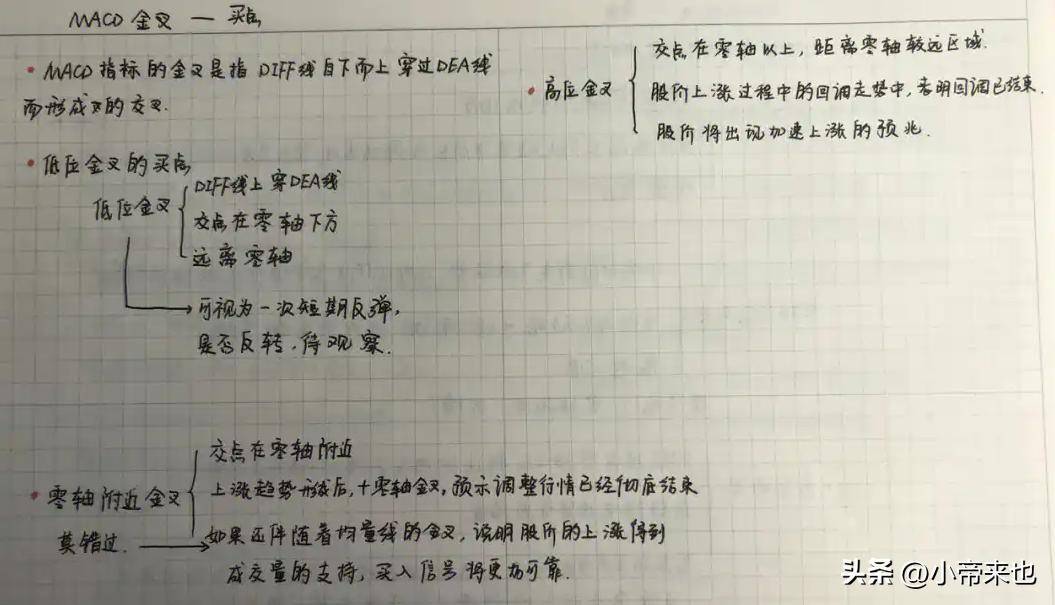 MACD 金叉 — 买点
• MACD 指标的金叉是指 DIFF线自下而上穿过DEA线
而形成的交叉.
• 低位金叉的买点
低位金叉
DIFF线上穿DEA线
交点在零轴下方
远离零轴
可视为一次短期反弹,
是否反转,待观察.
• 高位金叉
交点在零轴以上,距离零轴较远区域.
股价上涨过程中的回调走势中,表明回调已结束.
股价将出现加速上涨的预兆.
• 零轴附近金叉
莫错过.
交点在零轴附近
上涨趋势形成后,+零轴金叉,预示调整行情已经彻底结束
如果还伴随着均量线的金叉,说明股价的上涨得到
成交量的支持,买入信号将更为可靠.
头条 @小帝来也